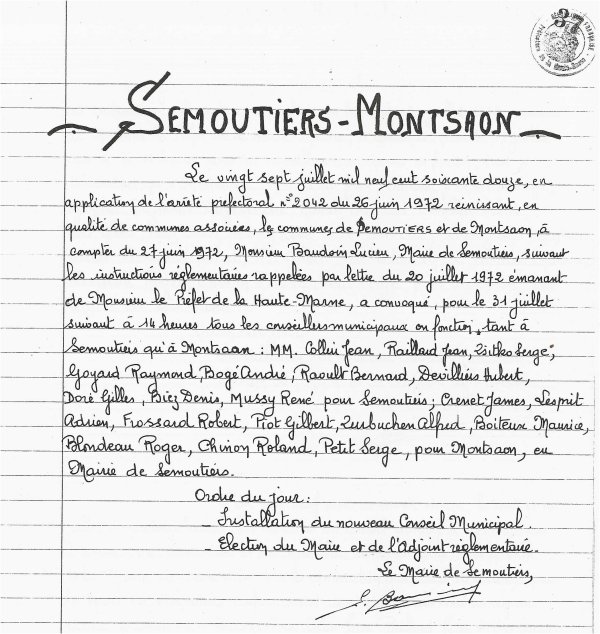 37
SEMOUTIERS-MONTSAON
Le vingt sept juillet mil neuf cent soixante douze, en
application de l'arrêté préfectoral n° 2042 du 26 juin 1972 réunissant, en
qualité de communes associées, les communes de SEMOUTIERS et de Montsaon, à
compter du 27 juin 1972, Monsieur Baudoin Lucien, Maire de Semoutiers, suivant
les instructions réglementaires rappelées par lettre du 20 juillet 1972 émanant
de Monsieur le Préfet de la Haute-Marne, a convoqué, pour le 31 juillet
suivant à 14 heures tous les conseillers municipaux en fonction, tant à
Semoutiers qu'à Montsaon : MM. Collin Jean, Raillard Jean, Serge,
Goyard Raymond, Bogé André, Raoult Bernard, Devilliers Hubert,
Doré Gilles, Biez Denis, Mussy René pour Semoutiers ; Crenet James, Lesprit
Adrien, Frossard Robert, Piot Gilbert, Zurbuchen Alfred, Boiteux Maurice,
Blondeau Roger, Chivon Roland, Petit Serge, pour Montsaon, en
Mairie de Semoutiers.
Ordre du jour :
- Installation du nouveau Conseil Municipal.
- Election du Maire et de l'Adjoint réglementaire.
Le Maire de Semoutiers,